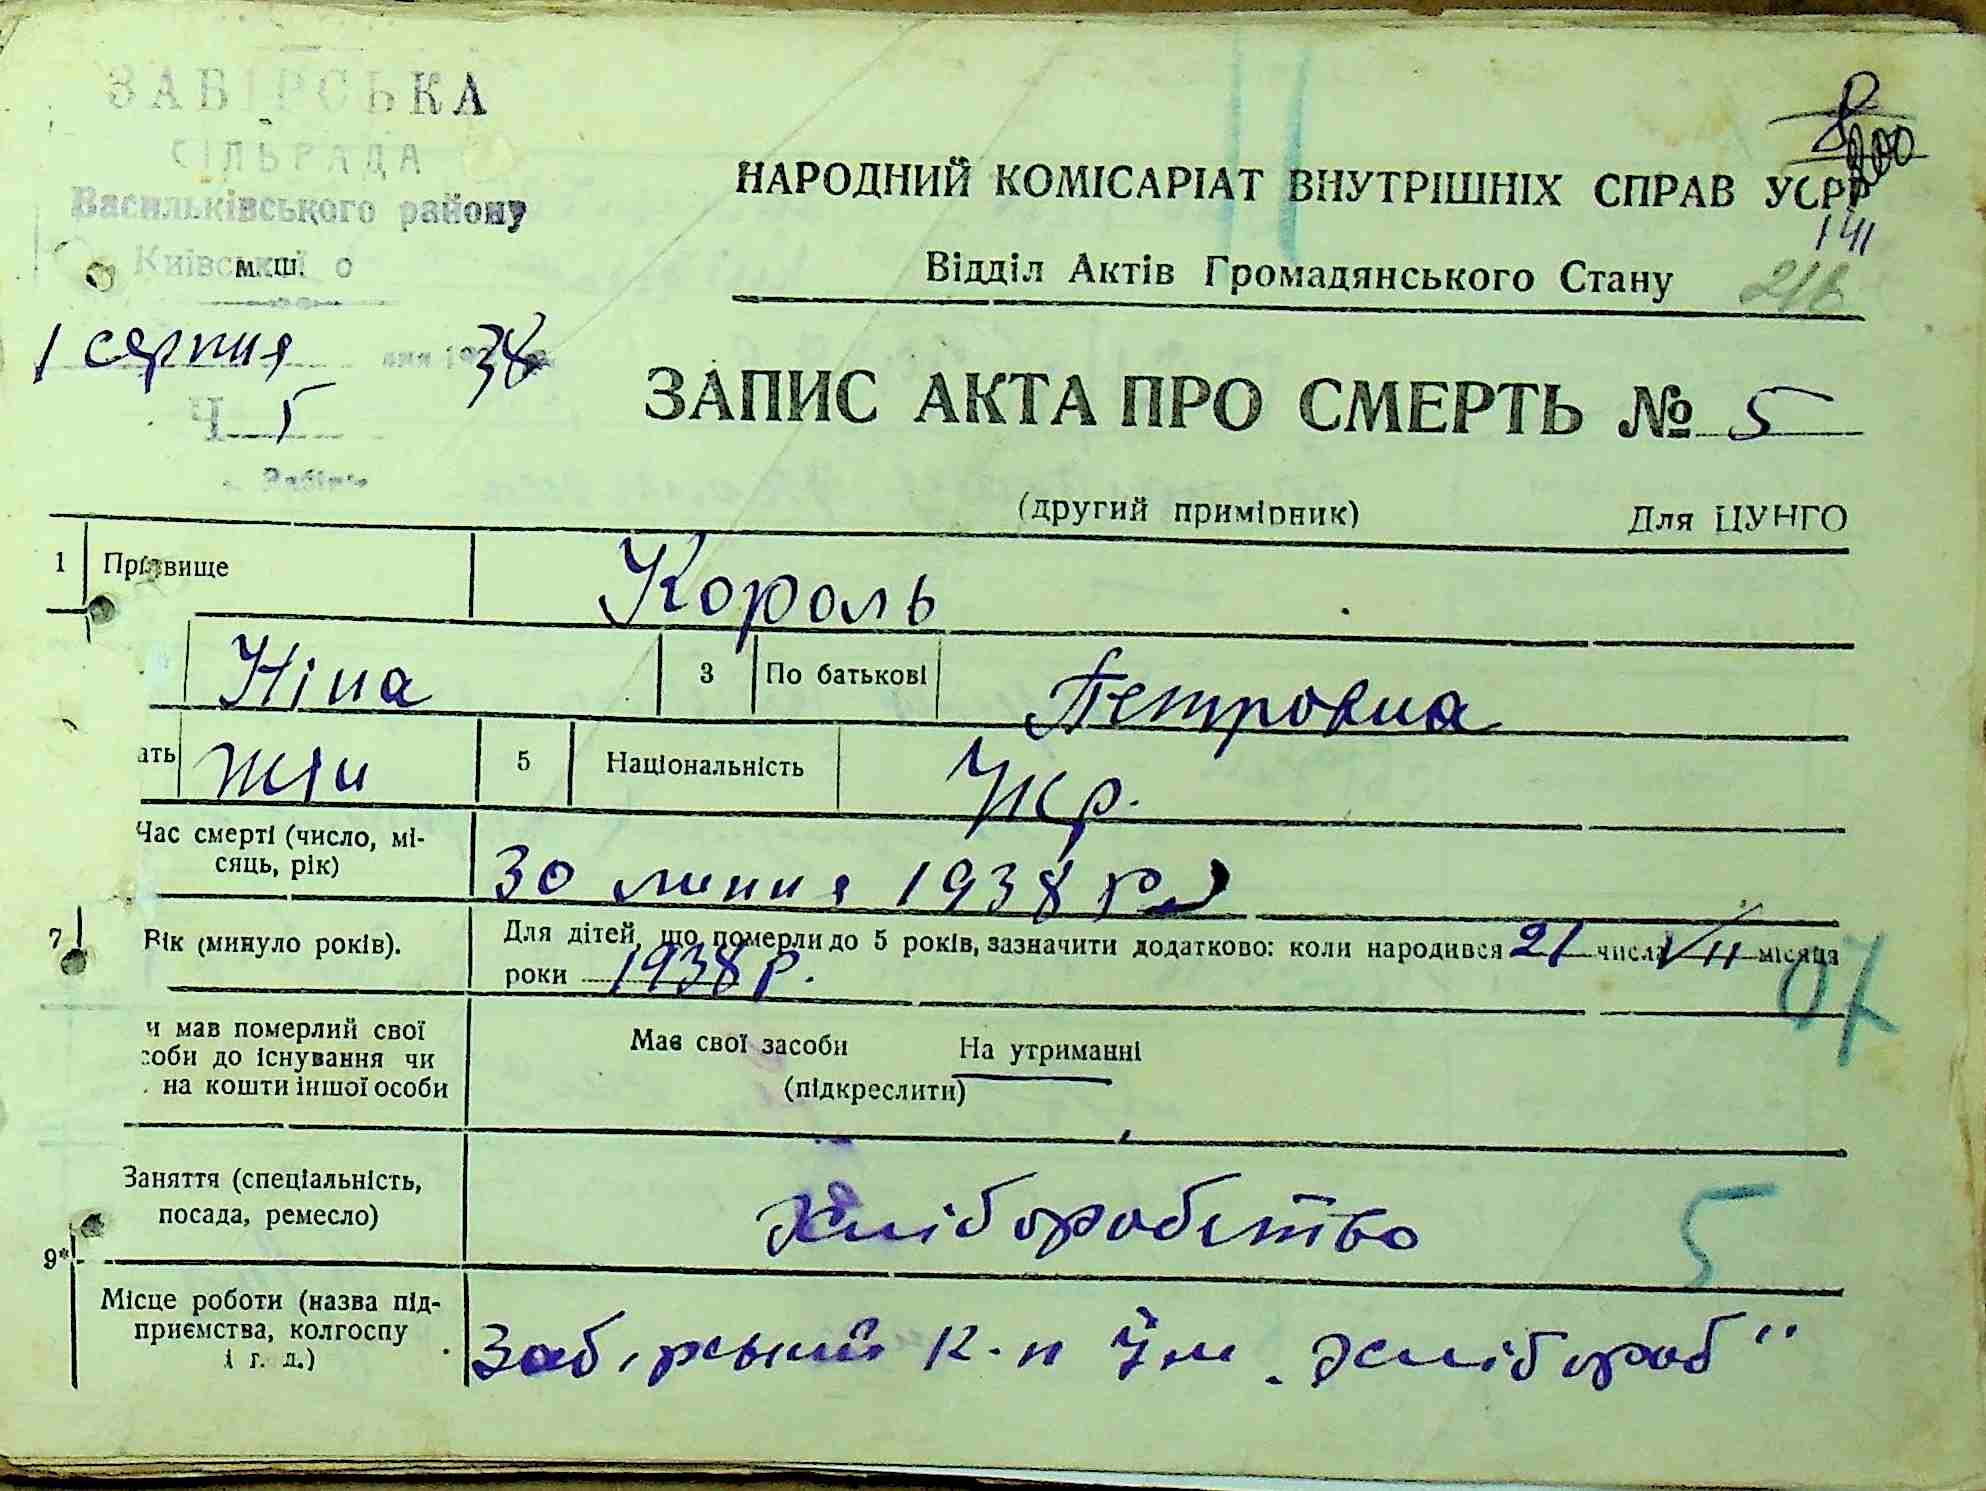 ЗАБІРСЬКА
СІЛЬРАДА
Васильківського району
Київської о
м. ш.
1 серпня дня 1938
Ч 5
200
141
216
НАРОДНИЙ КОМІСАРІАТ ВНУТРІШНІХ СПРАВ УСРР
Відділ Актів Громадянського Стану
ЗАПИС АКТА ПРО СМЕРТЬ № 5
(другий примірник) Для ЦУНГО
1 Прізвище Король
Ніна 3 По батькові Петровна
ать жін 5 Національність Укр.
Час смерті (число, мі-
сяць, рік) 30 липня 1938 р
7 Вік (минуло років). Для дітей, що померли до 5 років, зазначити додатково: коли народився 21 числа VII місяця
роки 1938 р.
07
и мав померлий свої
соби до існування чи
на кошти іншої особи
Має свої засоби На утриманні
(підкреслити)
Заняття (спеціальність,
посада, ремесло) Хліборобство
5
9*
Місце роботи (назва під-
приємства, колгоспу
і г. д.)
Забірський к-п ім „Хлібороб"